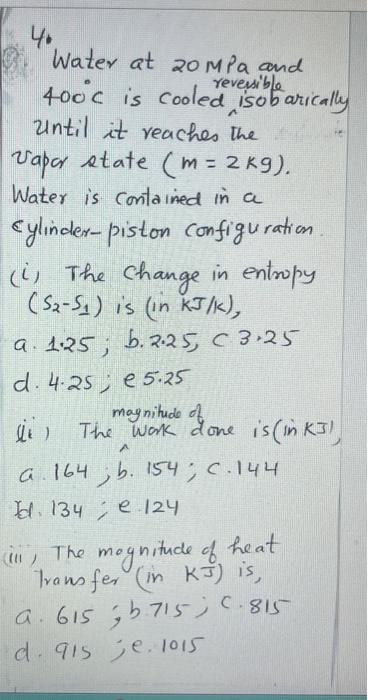 4.
Water at 20 MPa and
reversible
400°C is cooled ‸isobarically
until it reaches the
vapor state (m = 2 kg).
Water is contained in a
cylinder-piston configuration.
(i) The change in entropy
(S2-S1) is (in KJ/K),
a. 1.25 ; b. 2.25, C 3.25
d. 4.25 ; e 5.25
magnitude of
(ii) The ‸ work done is (in KJ),
a. 164 ; b. 154 ; C. 144
d. 134 ; e. 124
(iii) The magnitude of heat
Transfer (in KJ) is,
a. 615 ; b. 715 ; C. 815
d. 915 ; e. 1015